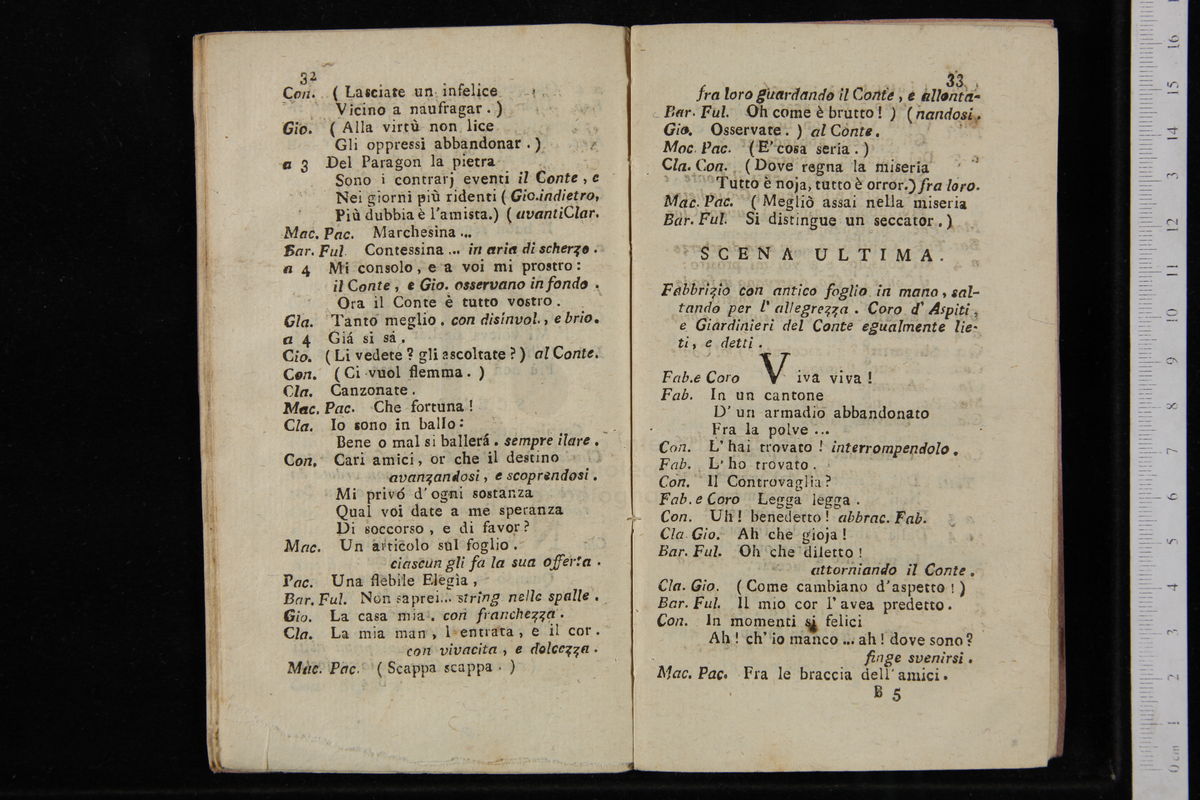 32
Con. ( Lasciate un infelice
Vicino a naufragar . )
Gio. ( Alla virtù non lice
Gli oppressi abbandonar . )
a 3 Del Paragon la pietra
Sono i contrarj eventi il Conte , e
Nei giorni più ridenti ( Gio.indietro,
Più dubbia è l'amista.) ( avantiClar.
Mac. Pac. Marchesina ...
Bar. Ful. Contessina ... in aria di scherzo .
a 4 Mi consolo , e a voi mi prostro :
il Conte , e Gio. osservano in fondo .
Ora il Conte è tutto vostro .
Gla. Tanto meglio . con disinvol. , e brio.
a 4 Giá si sá .
Gio. ( Li vedete ? gli ascoltate ? ) al Conte.
Con. ( Ci vuol flemma . )
Cla. Canzonate .
Mac. Pac. Che fortuna !
Cla. Io sono in ballo :
Bene o mal si ballerá . sempre ilare .
Con. Cari amici , or che il destino
avanzandosi , e scoprendosi .
Mi privó d' ogni sostanza
Qual voi date a me speranza
Di soccorso , e di favor ?
Mac. Un articolo sul foglio .
ciascun gli fa la sua offerta .
Pac. Una flebile Elegìa ,
Bar. Ful. Non saprei... string nelle spalle .
Gio. La casa mia . con franchezza .
Cla. La mia man , l entrata , e il cor .
con vivacita , e dolcezza .
Mac. Pac. ( Scappa scappa . )
33
fra loro guardando il Conte , e allonta-
Bar. Ful. Oh come è brutto ! ) ( nandosi .
Gio. Osservate . ) al Conte .
Moc. Pac. ( E' cosa seria . )
Cla. Con. ( Dove regna la miseria
Tutto è noja, tutto è orror.) fra loro.
Mac. Pac. ( Megliò assai nella miseria
Bar. Ful. Si distingue un seccator . )
SCENA ULTIMA.
Fabbrizio con antico foglio in mano , sal-
tando per l' allegrezza . Coro d' Aspiti ,
e Giardinieri del Conte egualmente lie-
ti , e detti .
Fab.e Coro Viva viva !
Fab. In un cantone
D' un armadio abbandonato
Fra la polve ...
Con. L' hai trovato ! interrompendolo .
Fab. L' ho trovato .
Con. Il Controvaglia ?
Fab. e Coro Legga legga .
Con. Uh ! benedetto ! abbrac. Fab.
Cla Gio. Ah che gioja !
Bar. Ful. Oh che diletto !
attorniando il Conte .
Cla. Gio. ( Come cambiano d'aspetto ! )
Bar. Ful. Il mio cor l' avea predetto .
Con. In momenti sì felici
Ah ! ch' io manco ... ah ! dove sono ?
finge svenirsi .
Mac. Pac. Fra le braccia dell' amici .
B 5
0 cm 1 2 3 4 5 6 7 8 9 10 11 12 13 14 15 16